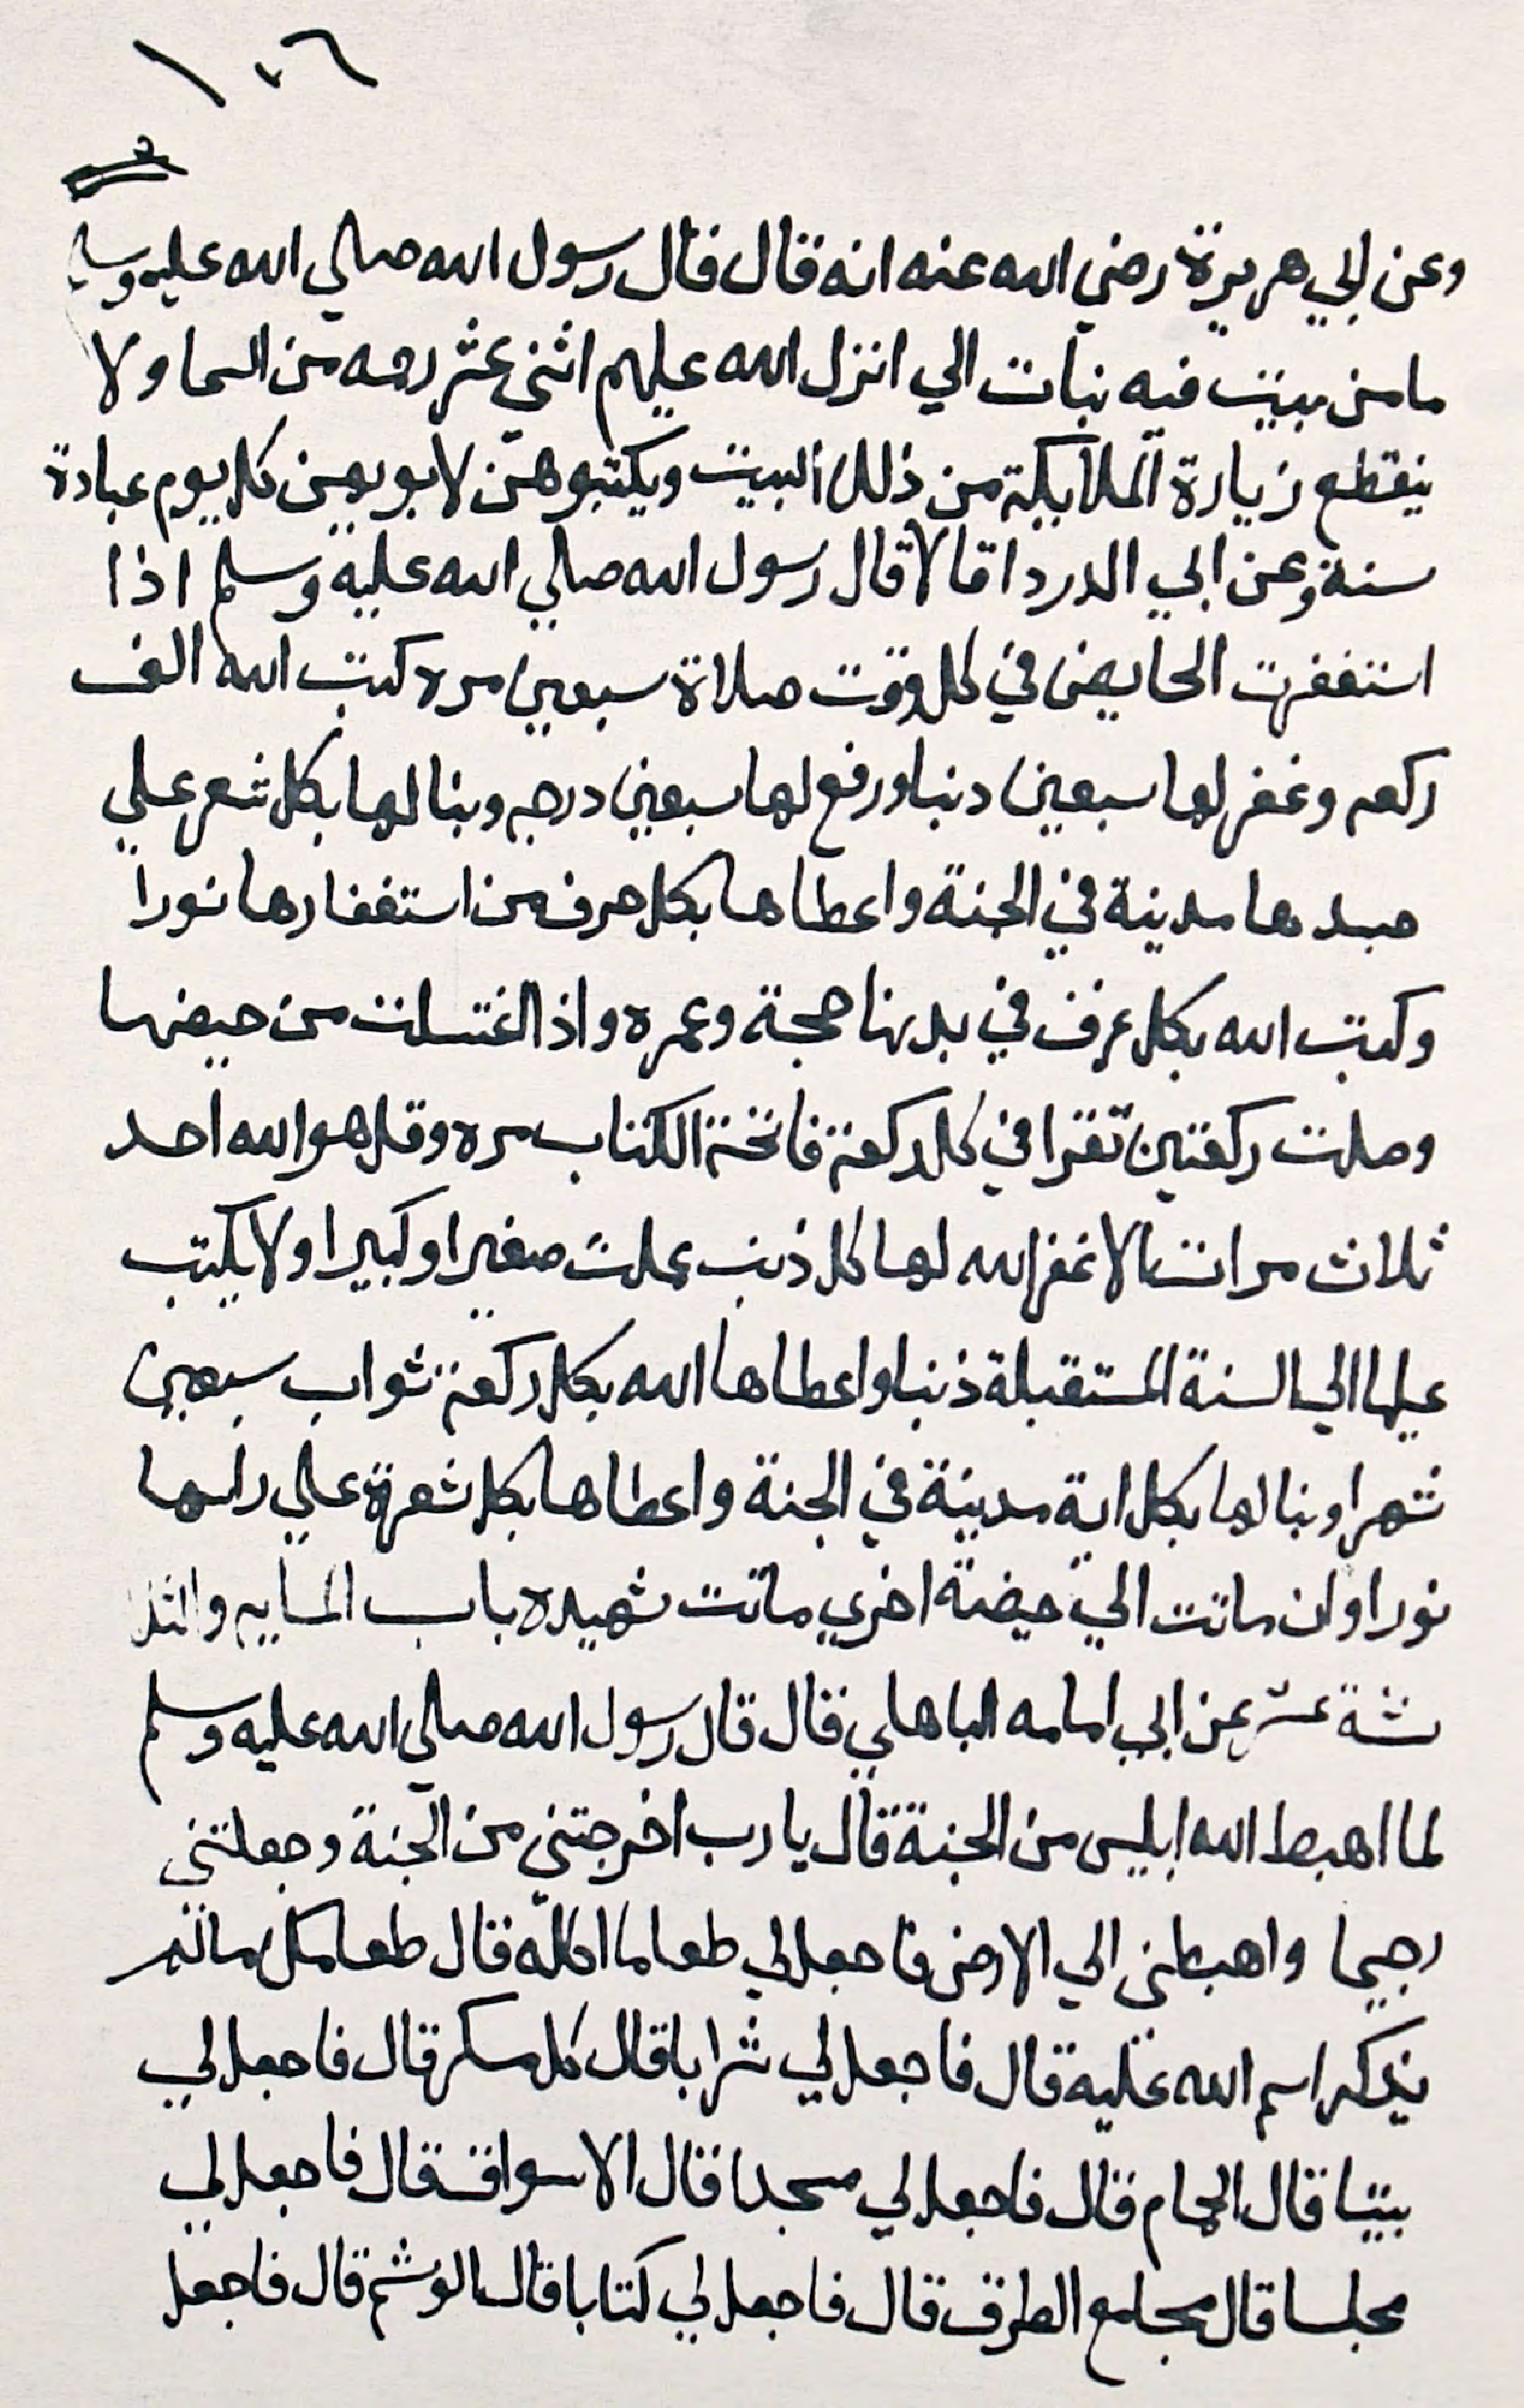 ١٠٦
وعن ابي هريرة رضي الله عنه انه قال قال رسول الله صلي الله عليه وسلم
ما من بيت فيه نبات الي انزل الله عليهم اثني عشر رحمه من السما ولا
ينقطع زيارة الملايكة من ذلك البيت ويكتبوهن لابويهن كل يوم عبادة
سنة وعن ابي الدردا قالا قال رسول الله صلي الله عليه وسلم اذا
استغفرت الحايض في كل وقت صلاة سبعين مره كتب الله الف
ركعه وغفر لها سبعين دنبا ورفع لها سبعين درجه وبنا لها بكل شعر علي
جسدها مدينة في الجنة واعطاها بكل حرف من استغفارها نورا
وكتب الله بكل عرف في بدنها حجة وعمره واذا اغتسلت من حيضها
وصلت ركعتين تقرا في كل ركعة فاتحة الكتاب مره وقل هو الله احد
ثلاث مرات الا غفر الله لها كل ذنب عملت صغيرا وكبيرا ولا يكتب
عليها الي السنة المستقبلة ذنبا واعطاها الله بكل ركعة ثواب سبعين
شهرا وبنا لها بكل اية مدينة في الجنة واعطاها بكل شعرة علي راسها
نورا وان ماتت الي حيضة اخري ماتت شهيده باب المايه والثلا
ثة عشر عن ابي امامه الباهلي قال قال رسول الله صلي الله عليه وسلم
لما اهبط الله ابليس من الجنة قال يا رب اخرجتني من الجنة وجعلتني
رجيما واهبطني الي الارض فاجعل لي طعاما اكله قال طعامك ما لم
يذكر اسم الله عليه قال فاجعل لي شرابا قال كل مسكر قال فاجعل لي
بيتا قال الحمام قال فاجعل لي مسجدا قال الاسواق قال فاجعل لي
مجلسا قال مجامع الطرق قال فاجعل لي كتابا قال الوشم قال فاجعل